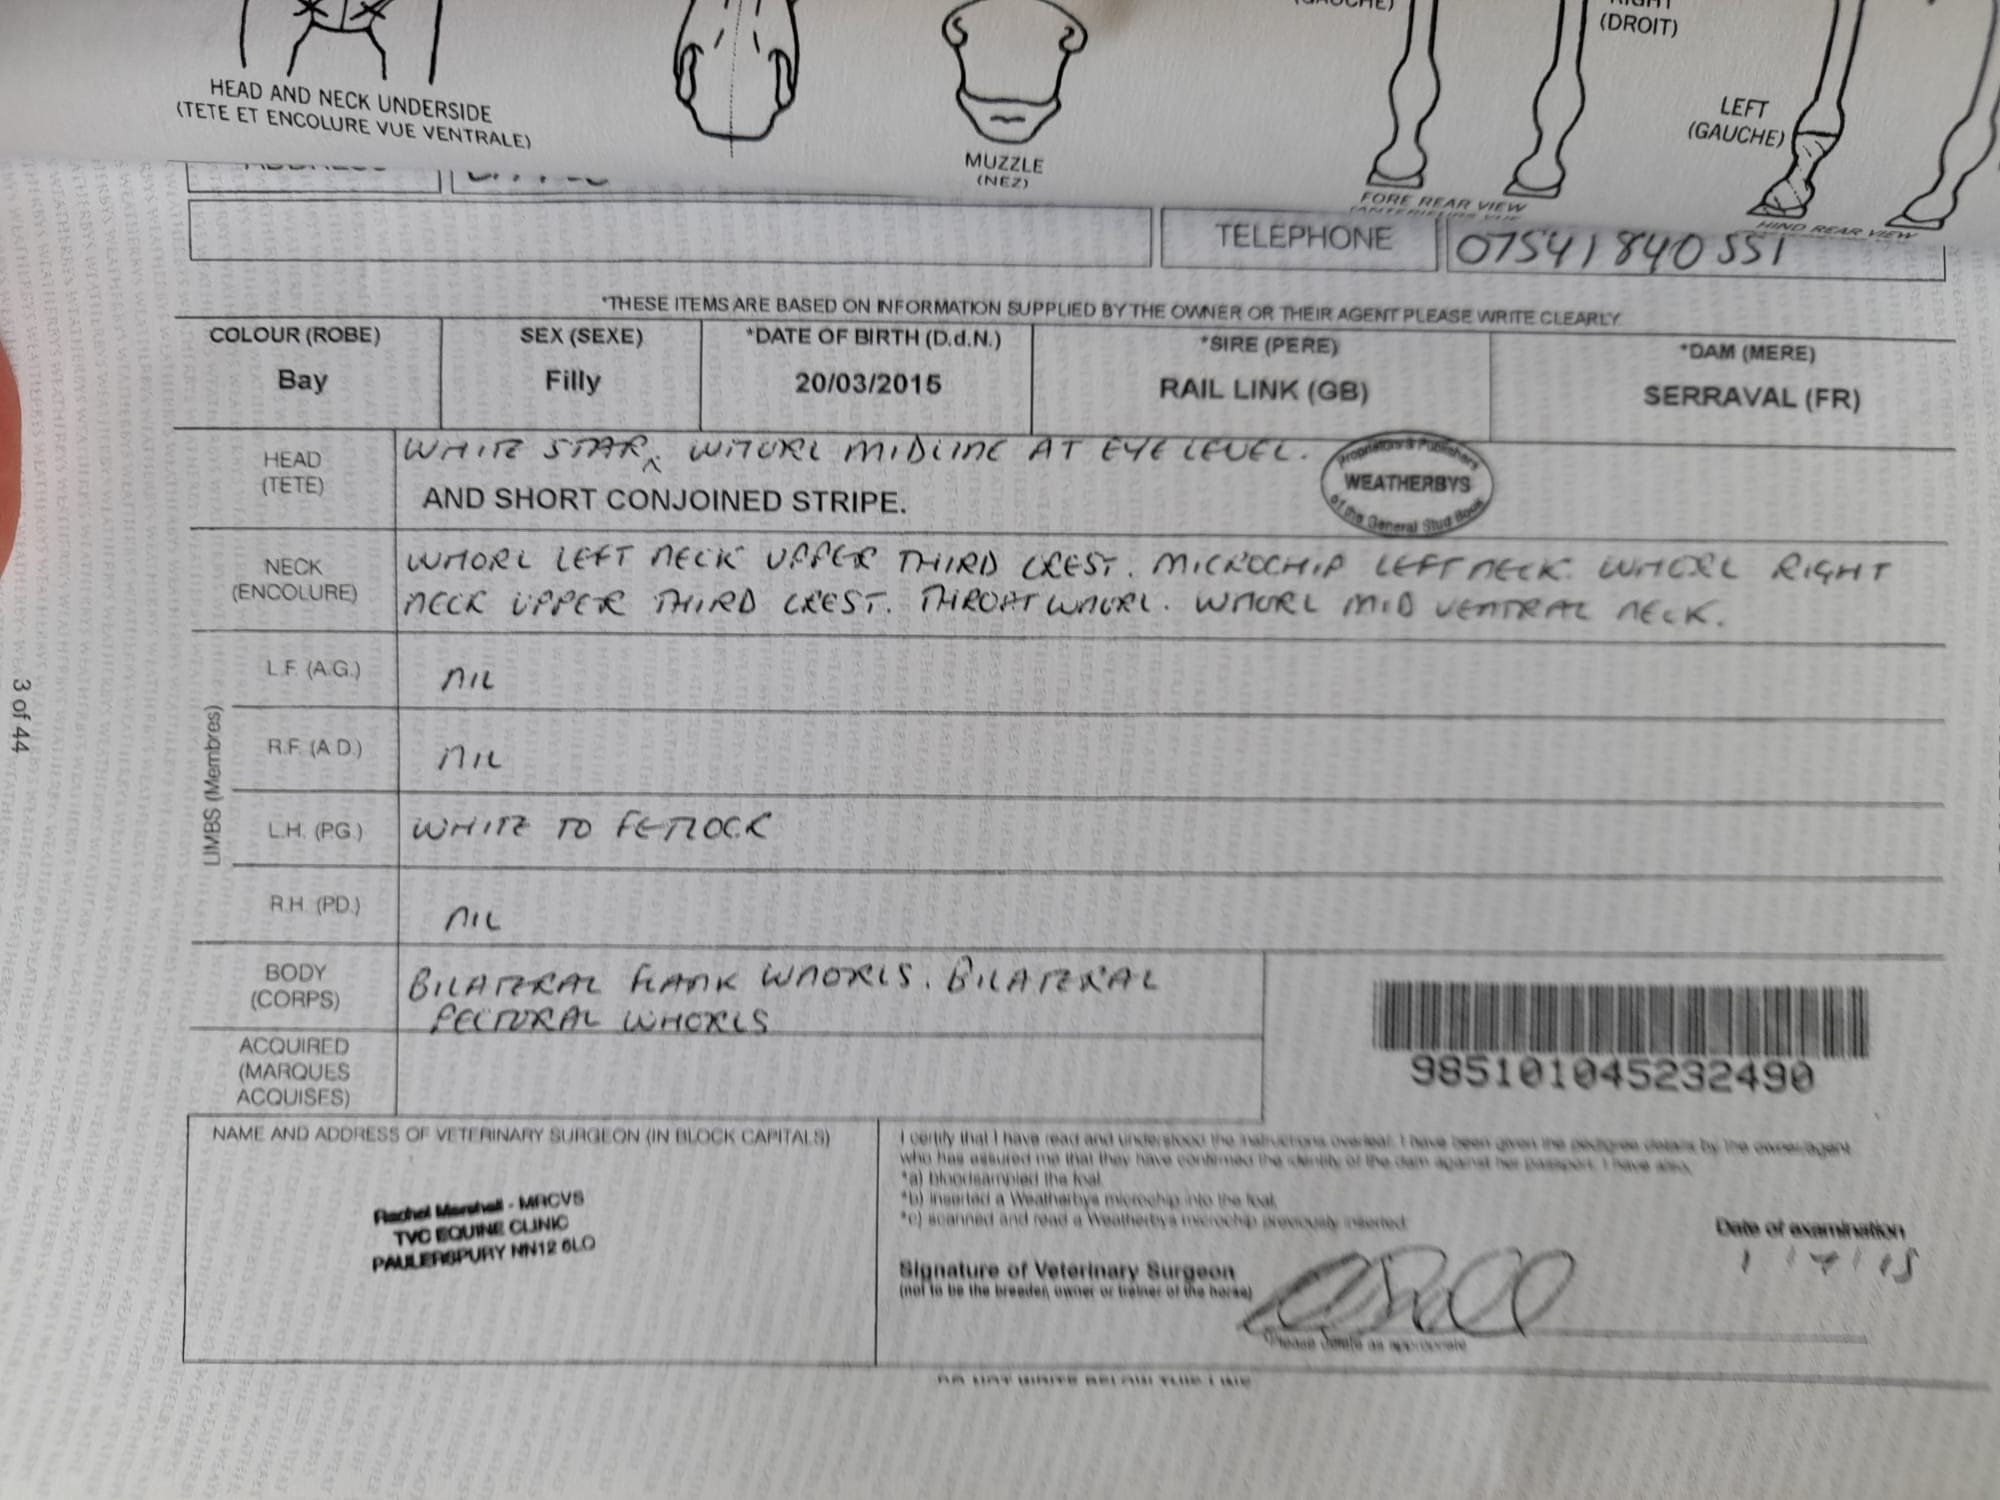 (DROIT)
HEAD AND NECK UNDERSIDE
(TETE ET ENCOLURE VUE VENTRALE)
MUZZLE
(NEZ)
LEFT
(GAUCHE)
FORE REAR VIEW
HIND REAR VIEW
TELEPHONE 07541840551
*THESE ITEMS ARE BASED ON INFORMATION SUPPLIED BY THE OWNER OR THEIR AGENT PLEASE WRITE CLEARLY
COLOUR (ROBE) SEX (SEXE) *DATE OF BIRTH (D.d.N.) *SIRE (PERE) *DAM (MERE)
Bay Filly 20/03/2015 RAIL LINK (GB) SERRAVAL (FR)
HEAD
(TETE)
WHITE STAR ^. WHORL MIDLINE AT EYE LEVEL.
AND SHORT CONJOINED STRIPE.
Proprietors & Publishers
WEATHERBYS
of the General Stud Book
NECK
(ENCOLURE)
WHORL LEFT NECK UPPER THIRD CREST. MICROCHIP LEFT NECK. WHORL RIGHT
NECK UPPER THIRD CREST. THROAT WHORL. WHORL MID VENTRAL NECK.
LIMBS (Membres)
L.F. (A.G.) NIL
R.F. (A.D.) NIL
L.H. (P.G.) WHITE TO FETLOCK
R.H. (P.D.) NIL
BODY
(CORPS)
BILATERAL FLANK WHORLS. BILATERAL
PECTORAL WHORLS
ACQUIRED
(MARQUES
ACQUISES)
985101045232490
NAME AND ADDRESS OF VETERINARY SURGEON (IN BLOCK CAPITALS)
Rachel Marshall - MRCVS
TVC EQUINE CLINIC
PAULERSPURY NN12 6LQ
I certify that I have read and understood the instructions overleaf. I have been given the pedigree details by the owner/agent
who has assured me that they have confirmed the identity of the dam against her passport. I have also,
*a) bloodsampled the foal.
*b) inserted a Weatherbys microchip into the foal.
*c) scanned and read a Weatherbys microchip previously inserted.
Date of examination
Signature of Veterinary Surgeon
(not to be the breeder, owner or trainer of the horse)
*Please delete as appropriate
DO NOT WRITE BELOW THIS LINE
3 of 44